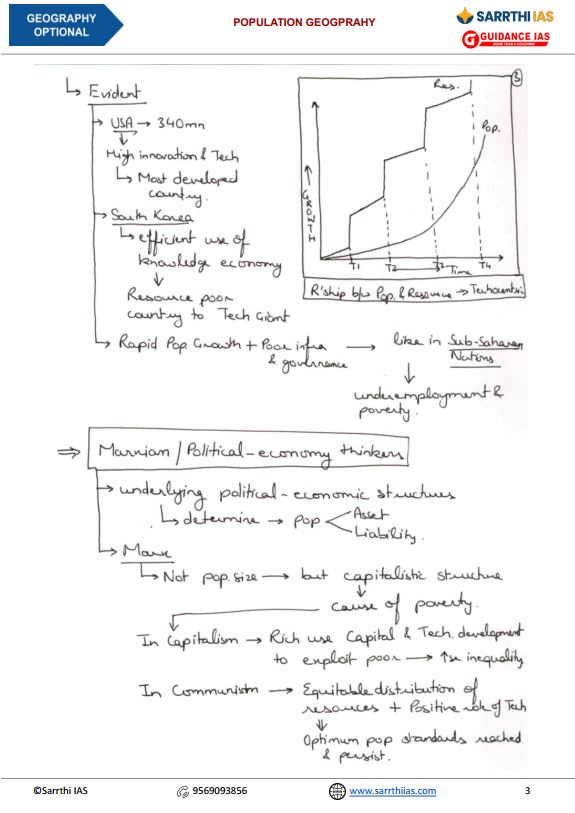 GEOGRAPHY
OPTIONAL
POPULATION GEOGPRAHY
SARRTHI IAS
GUIDANCE IAS
↳ Evident
→ USA → 340mn
↓
High innovation & Tech
↳ Most developed
country.
→ South Korea
↳ efficient use of
knowledge economy
↓
Resource poor
country to Tech Giant
3
Res.
Pop.
GROWTH
T1 T2 T3 T4
Time
R'ship b/w Pop. & Resource → Technocentric
→ Rapid Pop. Growth + Poor infra
& governance
→ like in Sub-Saharan
Nations
↓
underemployment &
poverty.
⇒ Marxian / Political-economy thinkers
→ underlying political-economic structures
↳ determine → pop < Asset
Liability.
→ Marx
↳ Not pop. size → but capitalistic structure
↓
cause of poverty.
In Capitalism → Rich use Capital & Tech. development
to exploit poor → ↑se inequality
In Communism → Equitable distribution of
resources + Positive role of Tech
⇓
Optimum pop standards reached
& persist.
©Sarrthi IAS
9569093856
www.sarrthiias.com
3